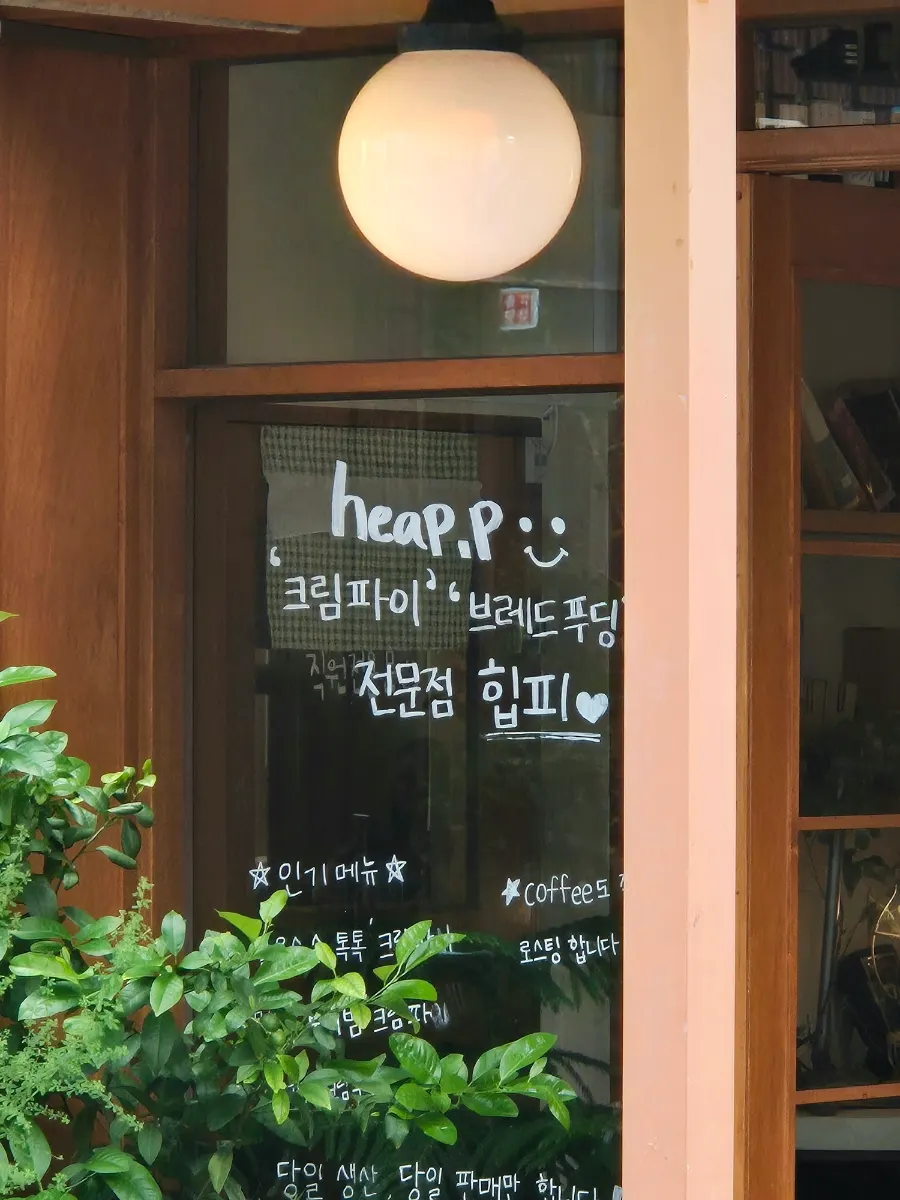 heap.p
'크림파이' '브레드푸딩'
전문점 힙피
☆인기메뉴☆
★coffee도
로스팅 합니다
톡톡' 크림
크림파이
당일 생산, 당일 판매만 합니다